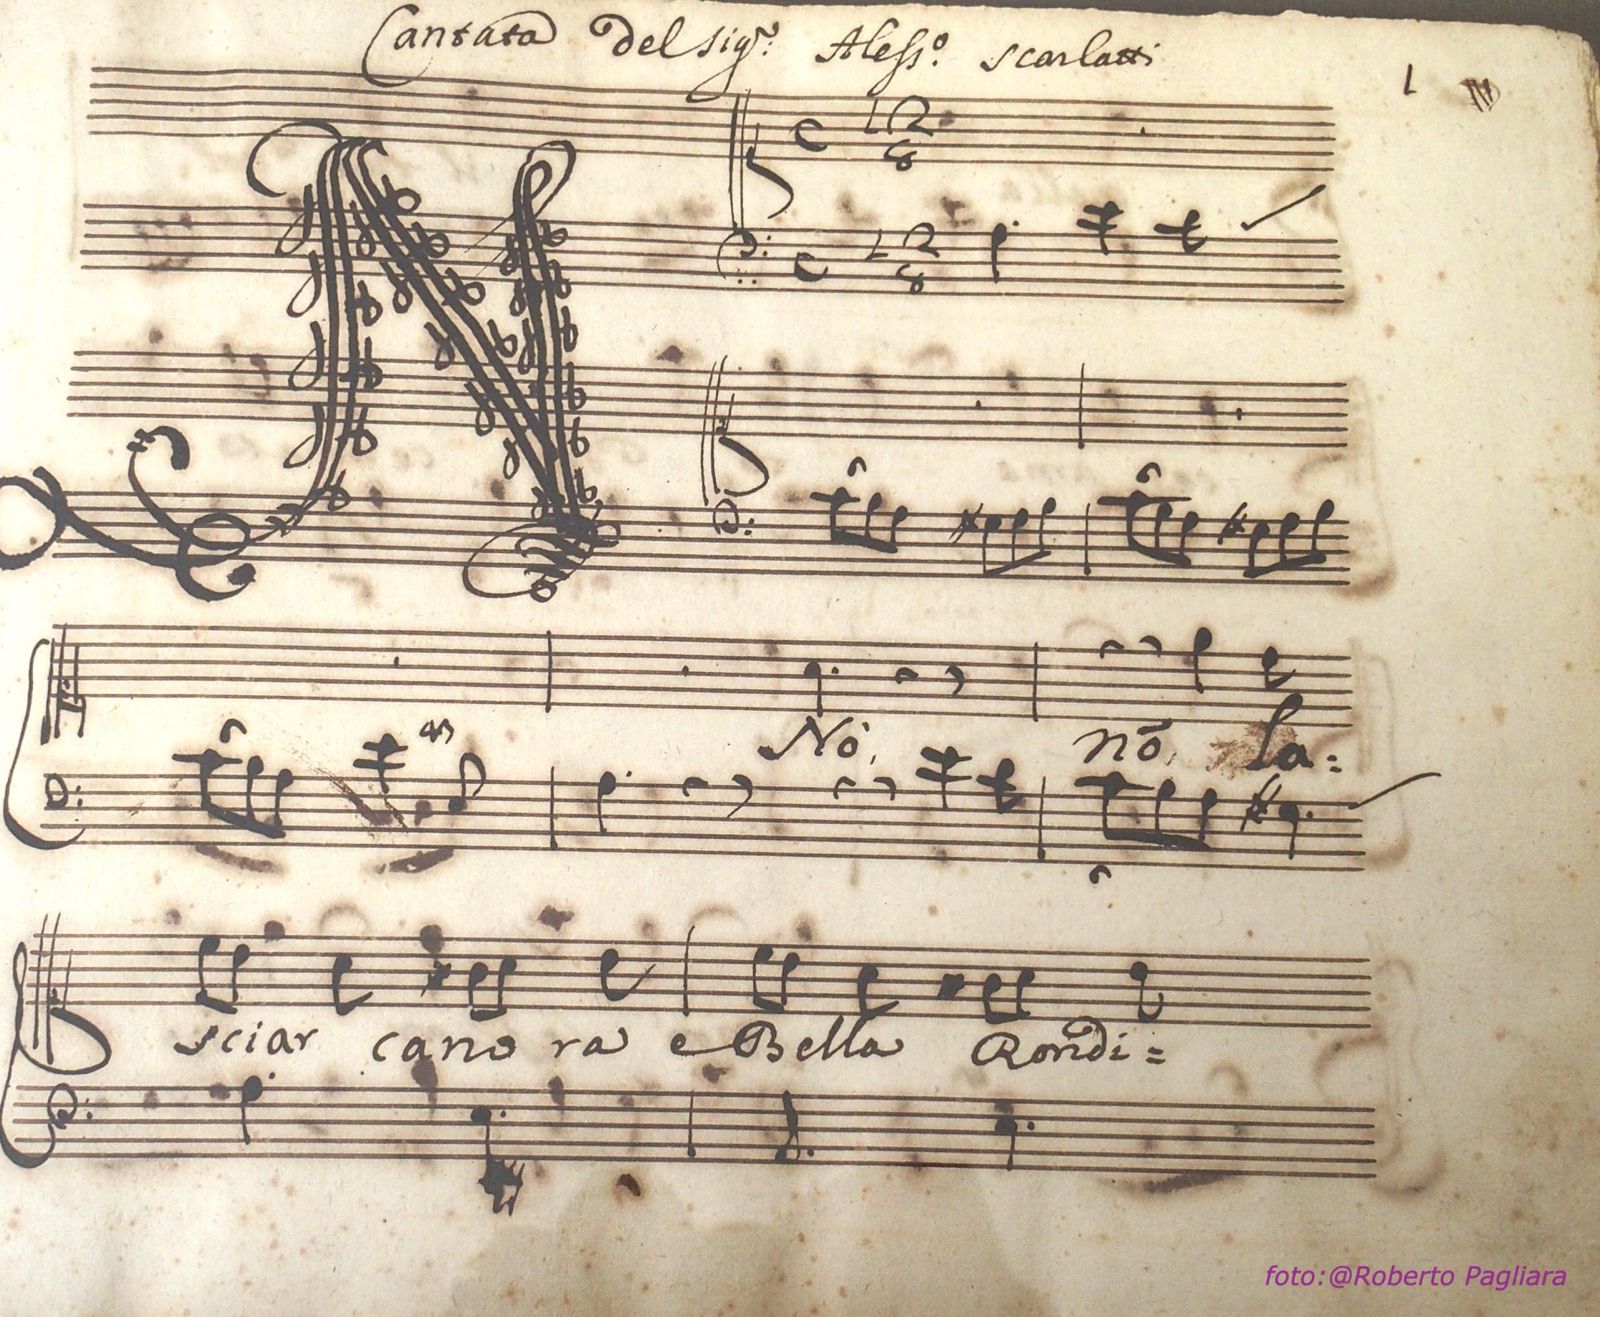 Cantata Del Sig.r Aless.o Scarlatti
1
C 12
8
C 12
8
N
Nò, nò, la=
sciar canora e Bella Rondi=
foto:@Roberto Pagliara